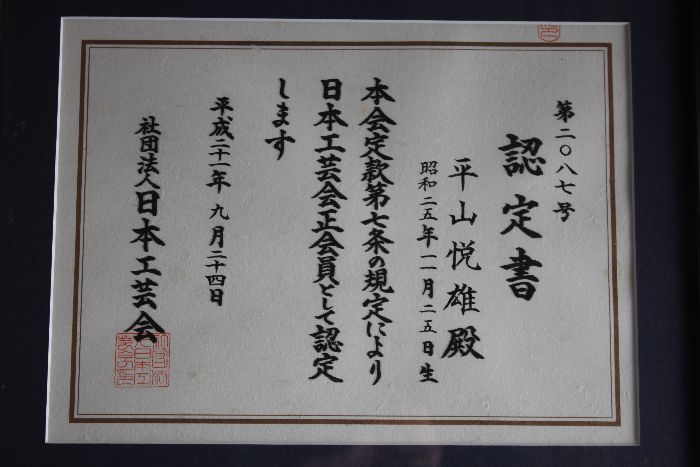 第二〇八七号
認定書
平山悦雄殿
昭和二五年一一月二五日生
本会定款第七条の規定により
日本工芸会正会員として認定
します
平成二十一年 九月二十四日
社団法人日本工芸会